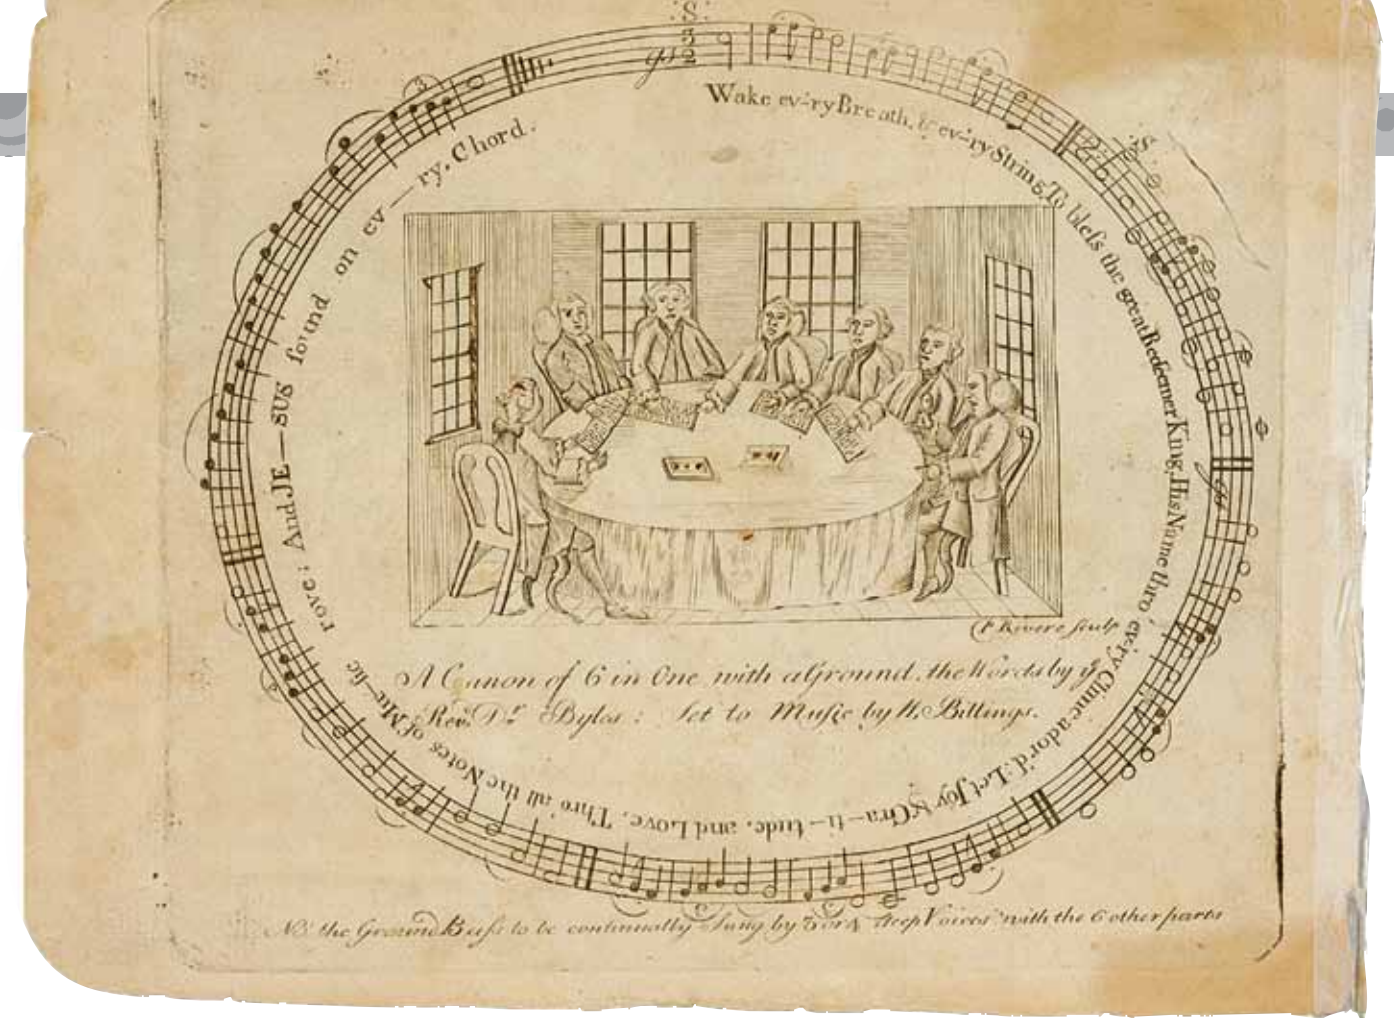 Wake ev-'ry Breath, & ev-'ry String, To bleſs the great Redeemer King, His Name thro' ev-'ry Clime ador'd: Let Joy & Gra—ti—tude, and Love, Thro' all the Notes of Mu—ſic rove: And JE—SUS ſound on ev—ry. Chord.
P Revere ſculp
A Canon of 6 in One with a Ground, the Words by yͤ
Revᵈ. Dʳ. Byles: Set to Muſic by W. Billings.
NB. the Ground Baſs to be continually Sung by 3 or 4 deep Voices with the 6 other parts